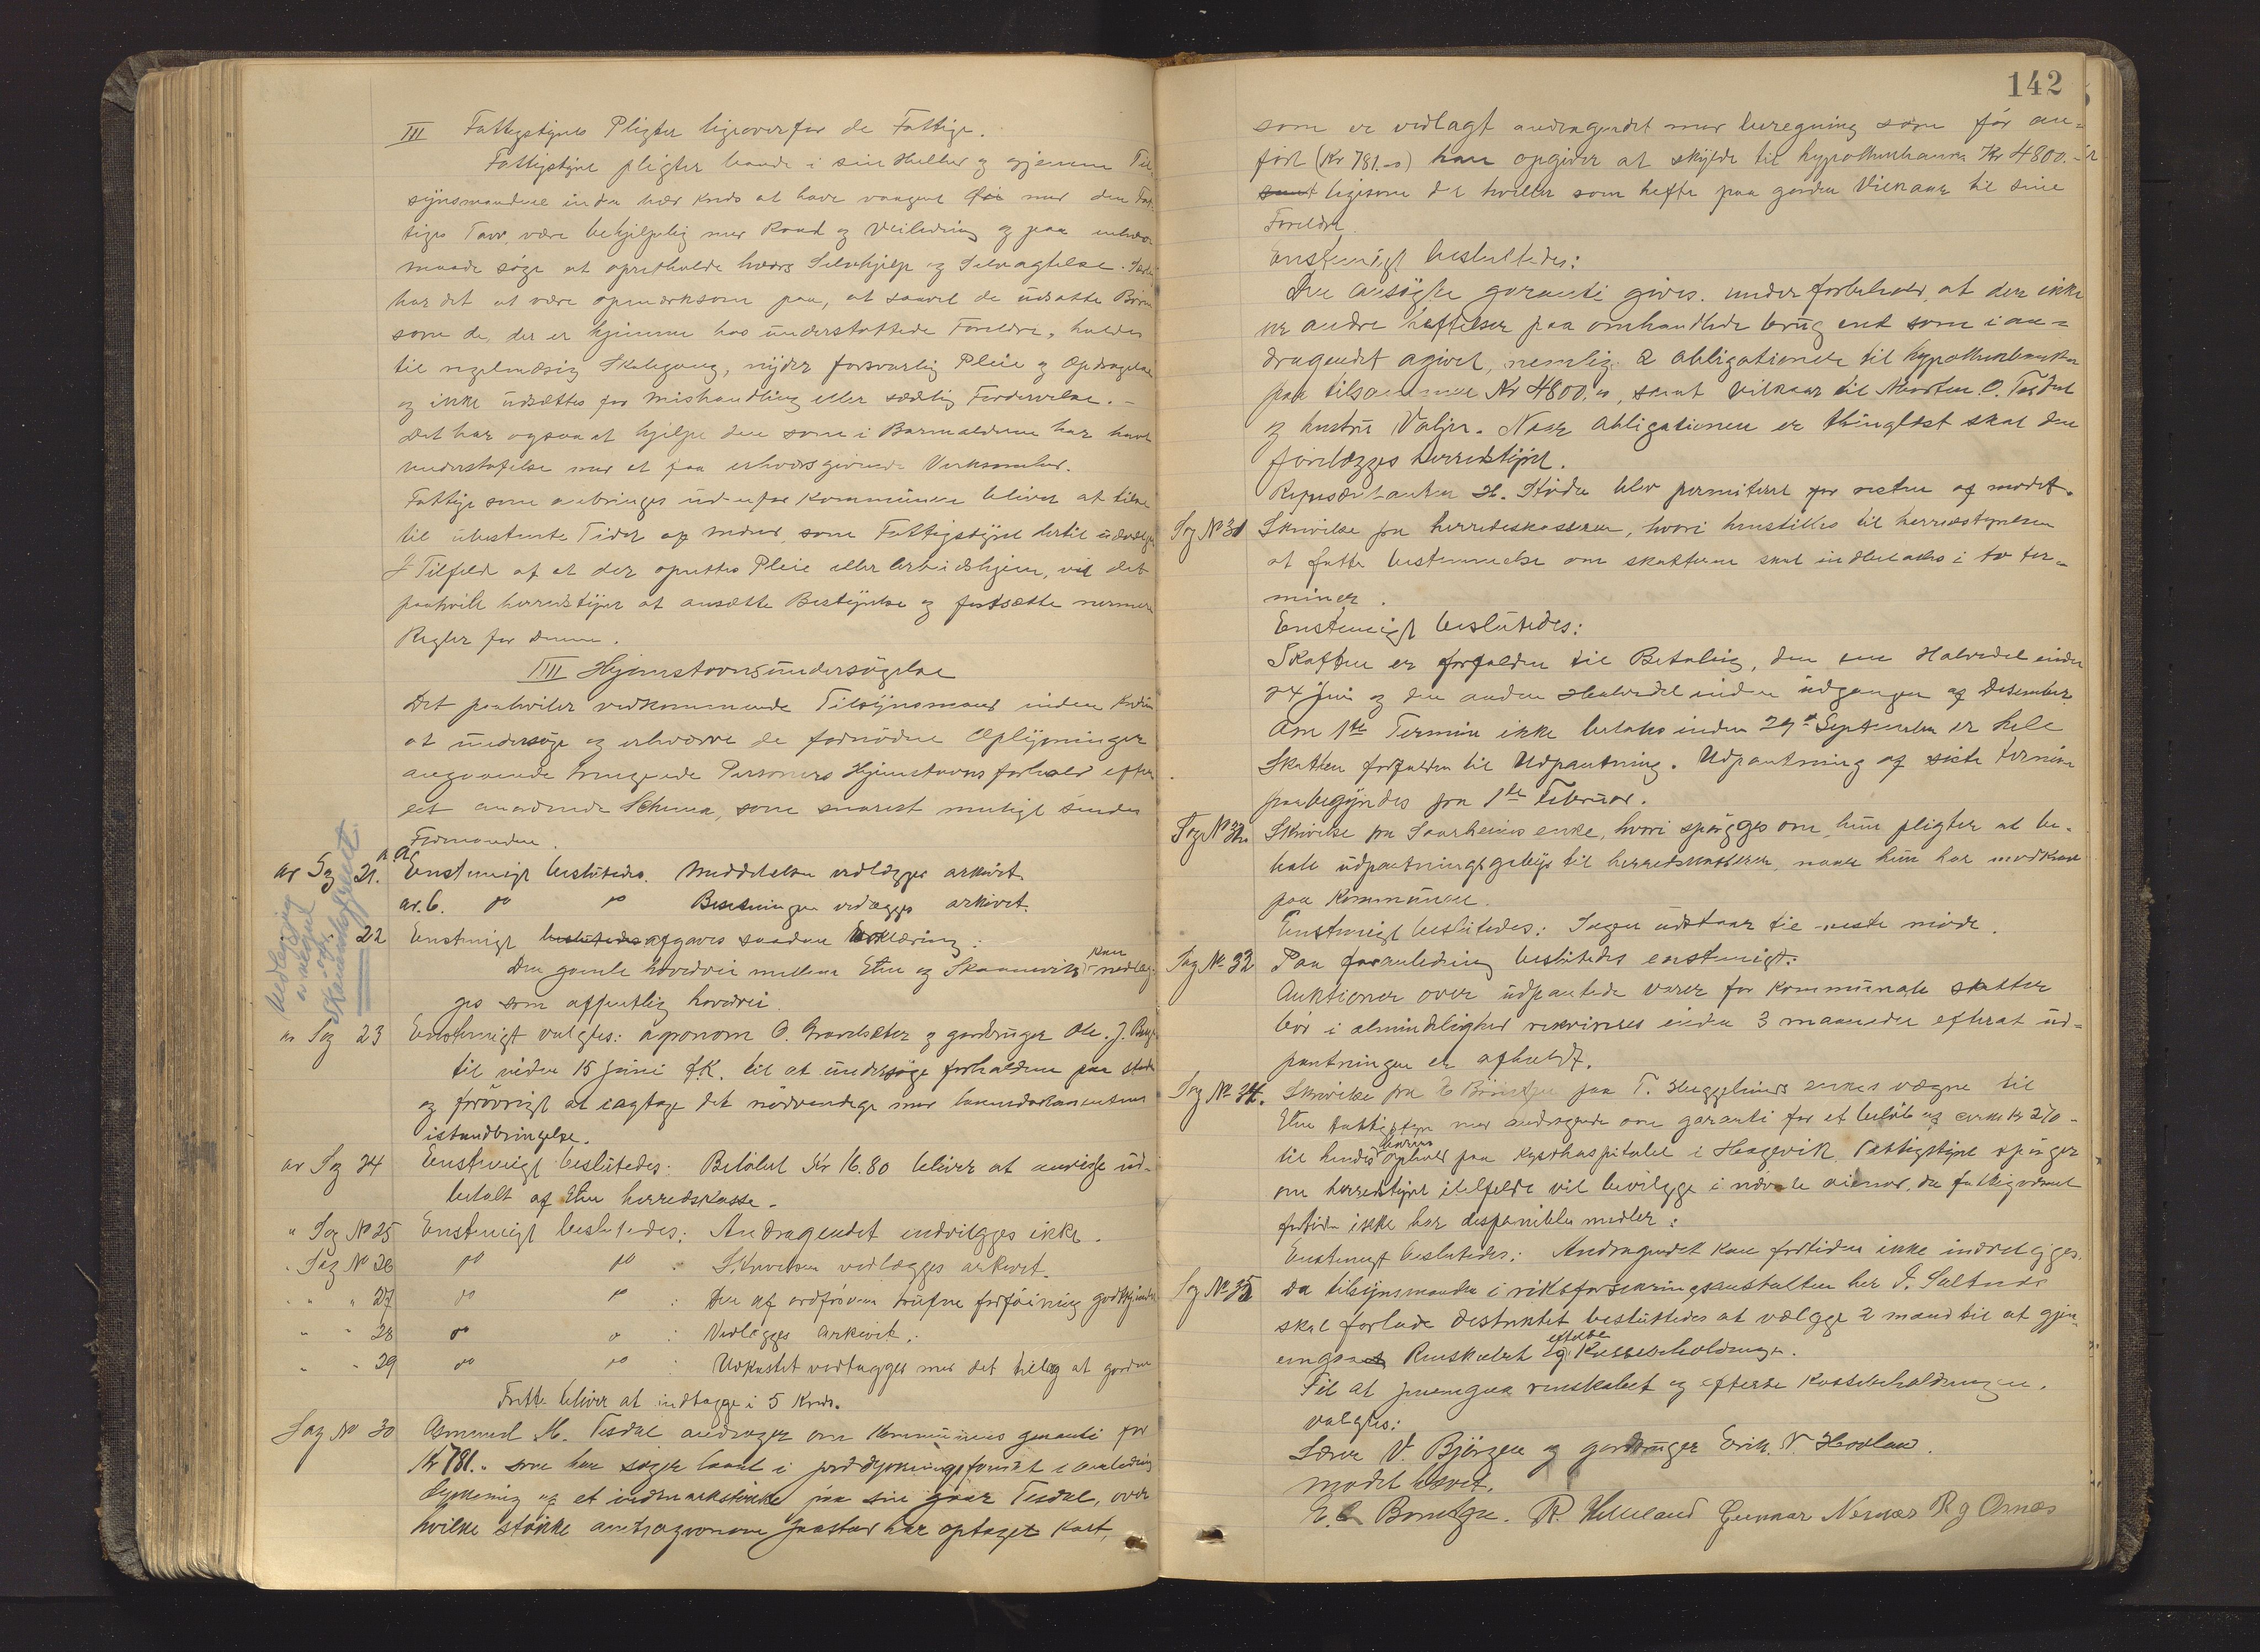 III Fattigstyrets Pligter ligeoverfor de Fattige.
Fattigstyret pligter baade i sin Helhed og gjennem Til-
synsmændene inden hver Kreds at have vaagent Øie med den Fat-
tiges Tarv, være behjelpelig med Raad og Veiledning og paa enhver
maade søge at opretholde hvers Selvhjelp og Selvagtelse.
har det at være opmerksom paa, at saavel de udsatte Børn
som de, der er hjemme hos understøttede Foreldre, holdes
til regelmæsig Skolegang, nyder forsvarlig Pleie og Opdragelse
og ikke udsættes for Mishandling eller sædlig Fordervelse. -
Det har ogsaa at hjelpe den som i Barnealderen har havt
understøttelse med at faa erhvervsgivende Virksomhed.
Fattige som anbringes udenfor Kommunen bliver at tilse
til ubestemte Tider af mænd, som Fattigstyret dertil udvælger
I Tilfelde af at der oprettes Pleie eller Arbeidshjem, vil det
paahvile herredstyret at ansætte Bestyrelse og fastsætte nermere
Regler for denne.
IIII Hjemstavnsundersøgelse
Det paahviler vedkommende Tilsynsmand inden Kredsen
at undersøge og erhverve de fornødne Oplysninger
angaaende trengende Personers Hjemstavnsforhold efter
et anordnede Schema, som snarest muligt sendes
Formanden.
ar Sag 21. a. Enstemigt beslutedes. Meddelelsen vedlægges arkivet.
ar. b. " " Beretningen vedlægges arkivet.
Nedlegging
av
Skaanevikfreist
22 Enstemigt beslutedes afgaves saadan Erklæring:
Den gamle hovedvei mellem Etne og Skaanevik kan nedlæg-
ges som offentlig hovedvei.
ar Sag 23 Enstemigt valgtes: agronom O. Gravelsæter og gardbruger Ole. J.
til inden 15 juni f.K. til at undersøge forholdene paa stedet
og forøvrigt at iagtage det nødvendige med
istandbringelse.
ar Sag 24 Enstemigt beslutedes: Beløbet Kr 16.80 bliver at anvise ud-
betalt af Etne herredskasse.
" Sag No 25 Enstemigt beslutedes: Andragendet indvilges ikke.
" Sag No 26 " " : Skrivelsen vedlægges arkivet.
" " " 27 " " : Den af ordføreren trufne forføining godkjendes
" " 28 " " : Vedlægges Arkivet.
" " 29 " " : Udkastet vedtagges med det tillæg at gorden
Fritte bliver at indtagge i 5 Kreds.
Sag No 30 Asmund M. Tesdal andrager om Kommunens garanti for
Kr 781.- som han søger laant i jorddyrkningsfondet i anledning
dyrkning af et indmarkstykke paa sin gaar Tesdal, over
hvilke stykke amtsagronom Jaastad har optaget Kart,
142
som er vedlagt andragendet med beregning som før an-
ført (Kr 781.00) han opgiver at skylde til hypothekbanken Kr 4800.-
samt ligesom der hviler som hefte paa garden Vilkaar til sine
Foreldre.
Enstemigt beslutedes:
Den ansøgte garanti gives. under forbehold, at der ikke
er andre heftelser paa omhandlede brug end som i an-
dragendet agivet, nemlig 2 obligationer til hypothekbanken
paa tilsammen Kr 4800.00, samt Vilkaar til Morten O. Tesdal
og hustru Valjer. Naar Obligationen er thinglæst skal den
forelægges herredstyret.
Representanten H. Støle blev permiteret for resten af mødet.
Sag No 31 Skrivelse fra herredskasseren, hvori henstilles til herredstyrelsen
at fatte bestemmelse om skatterne skal indbetales i to ter-
miner.
Enstemigt beslutedes:
Skatten er forfalden til Betaling, den ene Halvdel inden
24 juni og den anden Halvdel inden udgangen af Desember.
Om 1ste Termin ikke betales inden 29de September er hele
Skatten forfalden til Udpantning. Udpantning af siste termin
paabegyndes fra 1ste Februar.
Sag No 32. Skrivelse fra Saarheims enke, hvori spørgges om, hun pligter at be-
tale udpantningsgebyr til herredskasseren, naar hun har modkrav
paa Kommunen.
Enstemigt beslutedes: Sagen udstaar til neste møde.
Sag No 33 Paa foranledning beslutedes enstemigt:
Auktioner over udpantede varer for kommunale skatter
bør i almindelighed rekvireres inden 3 maaneder efterat ud-
pantningen er afholdt.
Sag No 34. Skrivelse fra E Børretzen paa T. Heggelunds enkes vægne til
Etne fattigstyre med andragende om garanti for et beløb af cirka kr 270-
til hendes barns ophold paa Kysthospitalet i Hagevik. Fattigstyret spørger
om herredstyret itilfelde vil bevilgge i nævnte øiemed, da fattigvæsenet
fortiden ikke har disponible midler:
Enstemigt beslutedes: Andragendet kan fortiden ikke indvilgges.
Sag No 35 Da tilsynsmanden i riksforsikringsanstalten her P. Saltnes
skal forlade distriktet besluttedes at vælgge 2 mand til at gjen-
nemgaa Renskabet og efterse Kassebeholdningen.
Til at gjenemgaa renskabet og efterse Kassebeholdningen.
valgtes:
Lærer V. Bjørgen og gardbruger Erik. N. Hovland.
mødet hævet.
E. Børretzen. R. Helleland Gunnar Nernæs R g Ørnæs